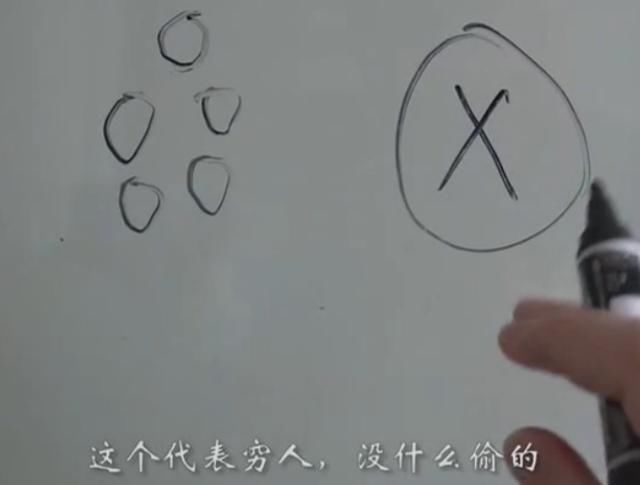 X
这个代表穷人，没什么偷的